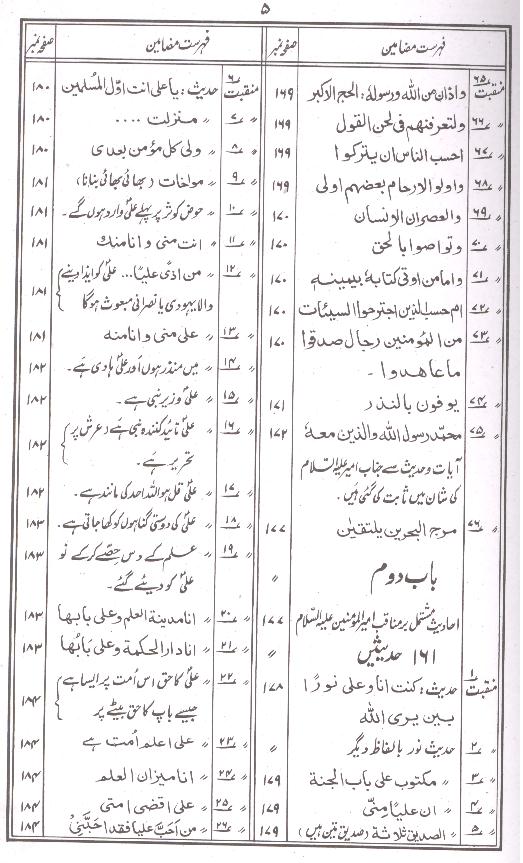 ۵
فہرست مضامین صفحہ نمبر
منقبت ۶۵ واذان من اللہ ورسولہ: الحج الاکبر ۱۶۹
〃 ۶۶ ولتعرفنھم فی لحن القول ۱۶۹
〃 ۶۷ احسب الناس ان یترکوا ۱۶۹
〃 ۶۸ واولو الارحام بعضھم اولی ۱۶۹
〃 ۶۹ والعصر ان الانسان ۱۷۰
〃 ۷۰ وتواصوا بالحق ۱۷۰
〃 ۷۱ واما من اوتی کتابہ بیمینہ ۱۷۰
〃 ۷۲ ام حسب الذین اجترحوا السیئات ۱۷۰
〃 ۷۳ من المؤمنین رجال صدقوا ۱۷۰
ما عاھدوا۔
〃 ۷۴ یوفون بالنذر ۱۷۱
〃 ۷۵ محمد رسول اللہ والذین معہ ۱۷۲
آیات و حدیث سے جناب امیر علیہ السلام
کی شان میں ثابت کی گئی ہیں۔
〃 ۷۶ مرج البحرین یلتقیٰن ۱۷۷
باب دوم 〃
احادیث مشتمل بر مناقب امیر المؤمنین علیہ السلام ۱۷۷
۱۶۱ حدیثیں 〃
منقبت ۱ حدیث: کنت انا وعلی نورًا ۱۷۸
بین یدی اللہ
〃 ۲ حدیث نور بالفاظ دیگر 〃
〃 ۳ 〃 مکتوب علی باب الجنة ۱۷۹
〃 ۴ 〃 ان علیا منّی ۱۷۹
〃 ۵ 〃 الصدیق ثلاثة (صدیق تین ہیں) ۱۷۹
فہرست مضامین صفحہ نمبر
منقبت ۶ حدیث: یا علی انت اوّل المسلمین ۱۸۰
〃 ۷ 〃 منزلت .... ۱۸۰
〃 ۸ 〃 ولی کل مؤمن بعدی ۱۸۰
〃 ۹ 〃 مواخات (بھائی بھائی بنانا) ۱۸۱
〃 ۱۰ 〃 حوض کوثر پر پہلے علیؑ وارد ہوں گے۔ ۱۸۱
〃 ۱۱ 〃 انت منی وانا منک ۱۸۱
〃 ۱۲ 〃 من اذی علیًا... علیؑ کو ایذا دینے
والا یہودی یا نصرانی مبعوث ہوگا ۱۸۱
〃 ۱۳ 〃 علی منی وانا منہ ۱۸۱
〃 ۱۴ 〃 میں منذر ہوں اور علیؑ ہادی ہے۔ ۱۸۲
〃 ۱۵ 〃 علیؑ وزیر نبی ہے۔ ۱۸۲
〃 ۱۶ 〃 علیؑ تائید کنندہ نبی ہے (عرش پر
تحریر ہے۔ ۱۸۲
〃 ۱۷ 〃 علیؑ قل ہو اللہ احد کی مانند ہے۔ ۱۸۲
〃 ۱۸ 〃 علیؑ کی دوستی گناہوں کو کھا جاتی ہے۔ ۱۸۳
〃 ۱۹ 〃 علم کے دس حصّے کرکے نو
علیؑ کو دیئے گئے۔ ۱۸۳
〃 ۲۰ 〃 انا مدینة العلم وعلی بابھا ۱۸۳
〃 ۲۱ 〃 انا دار الحکمة وعلی بابُھا ۱۸۳
〃 ۲۲ 〃 علیؑ کا حق اس اُمت پر ایسا ہے
جیسے باپ کا حق بیٹے پر ۱۸۴
〃 ۲۳ 〃 علی اعلم اُمت ہے ۱۸۴
〃 ۲۴ 〃 انا میزان العلم ۱۸۴
〃 ۲۵ 〃 علی اقضی امتی ۱۸۴
〃 ۲۶ 〃 من احبّ علیا فقد احبّنی ۱۸۴